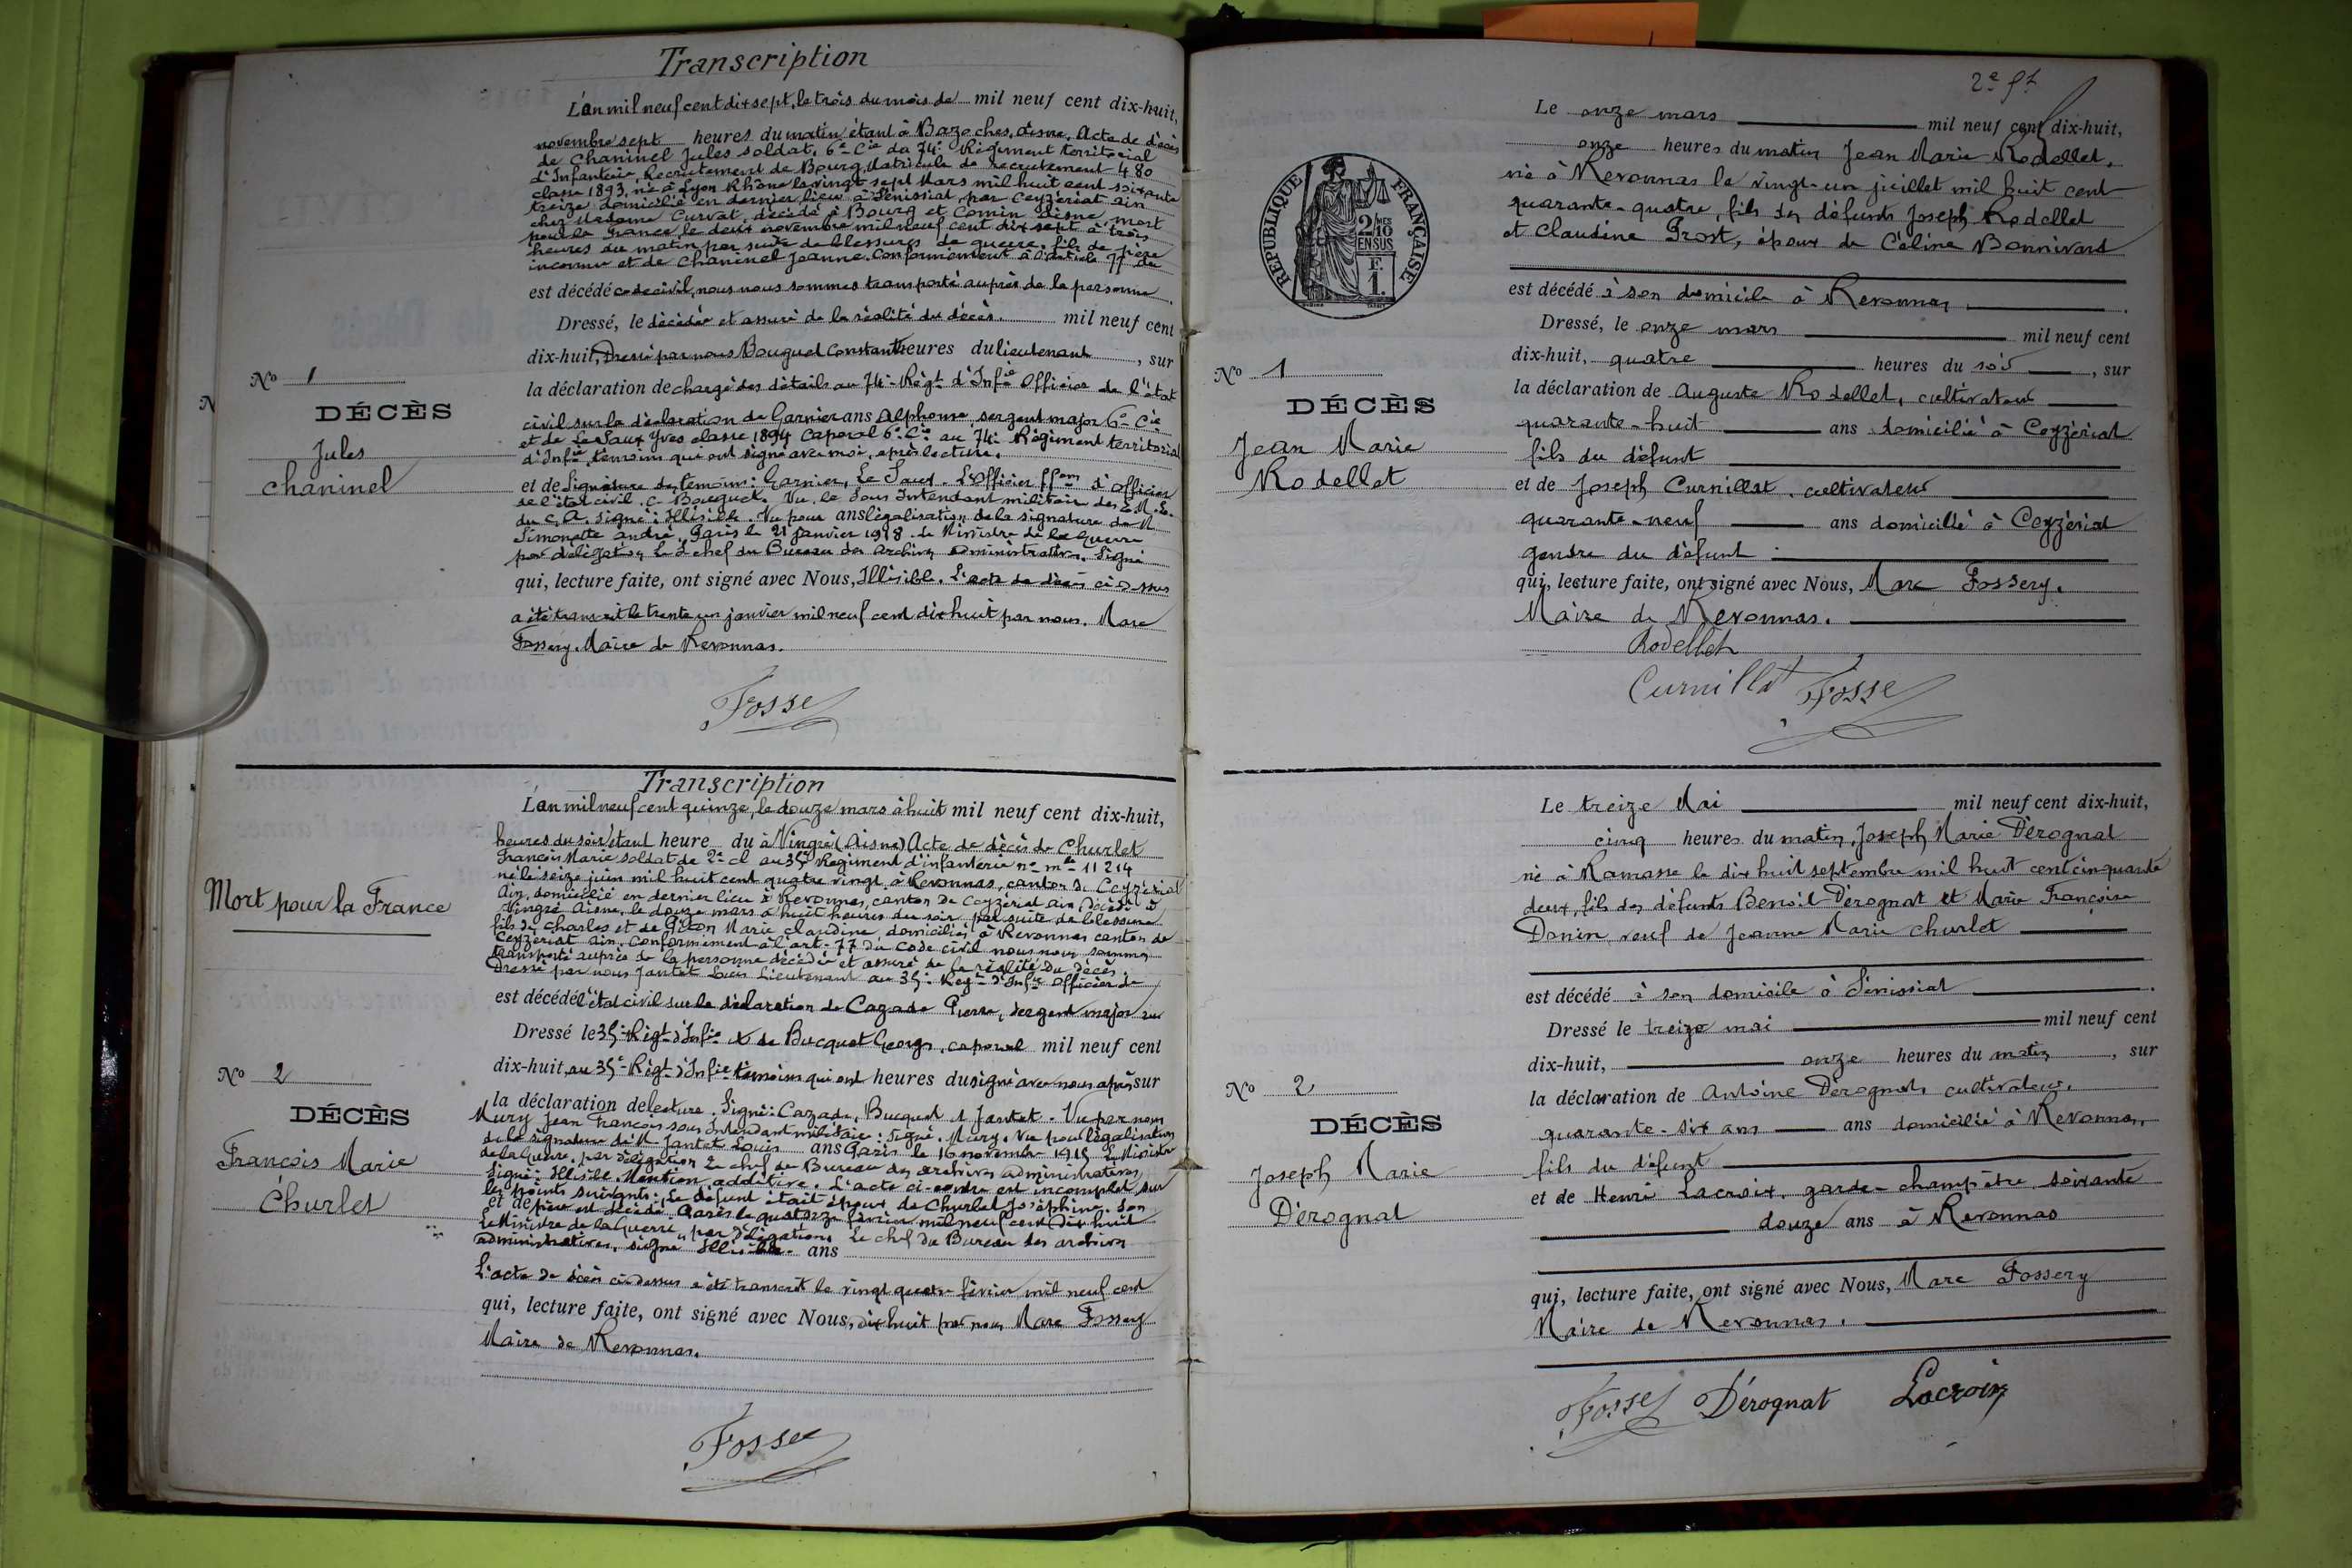 Transcription
L'an mil neuf cent dix sept, le trois du mois de mil neuf cent dix-huit,
novembre sept heures du matin étant à Bazoches, Aisne, Acte de décès
de Chaninel Jules soldat, 6e Cie du 74e Régiment territorial
d'Infanterie, Recrutement de Bourg, Matricule de recrutement 480
classe 1893, né à Lyon Rhône le vingt sept Mars mil huit cent soixante
treize domicilié en dernier lieu à Sénissiat par Ceyzériat Ain
chez Madame Curvat, décédé à Bourg et Comin Aisne, mort
pour la France le deux novembre mil neuf cent dix sept à trois
heures du matin par suite de blessures de guerre, fils de père
inconnu et de Chaninel Jeanne. Conformément à l'article 77 du
est décédé code civil, nous nous sommes transporté auprès de la personne
Dressé, le décédée et assuré de la réalité du décès. mil neuf cent
dix-huit, Dressé par nous Bouquet Constant heures du lieutenant, sur
la déclaration de chargé des détails au 74e Régt d'Infie Officier de l'état
civil sur la déclaration de Garnier ans Alphonse, sergent major 6e Cie
et de Le Saux Yves classe 1894 Caporal 6e Cie au 74e Régiment territorial
d'Infie témoins qui ont signé avec moi, après lecture.
et de Signature des témoins: Garnier, Le Saux. L'Officier ffons d'officier
de l'état civil. C. Bouquet. Vu, le Sous Intendant militaire des
du C.A. signé: Illisible. Vu pour ans légalisation de la signature de M
Simonette André. Paris le 21 janvier 1918. Le Ministre de la Guerre
par délégation, Le chef du Bureau des Archives administratives. Signé
qui, lecture faite, ont signé avec Nous, Illisible. L'acte de décès ci-dessus
a été transcrit le trente un janvier mil neuf cent dix huit par nous. Marc
Fossery. Maire de Revonnas.
Fossey
No 1
DÉCÈS
Jules
Chaninel
Transcription
L'an mil neuf cent quinze, le douze mars à huit mil neuf cent dix-huit,
heures du soir étant heure du à Vingré (Aisne) Acte de décès de Churlet
François Marie soldat de 2e cl au 35e Régiment d'infanterie no mle 11214
né le seize juin mil huit cent quatre vingt à Revonnas, canton de Ceyzériat
Ain, domicilié en dernier lieu à Revonnas, canton de Ceyzériat Ain, décédé à
Vingré Aisne, le douze mars à huit heures du soir par suite de blessure
fils de Charles et de Marie Claudine, domiciliés à Revonnas canton de
Ceyzériat Ain. Conformément à l'art. 77 du code civil nous nous sommes
transporté auprès de la personne décédée et assuré de la réalité du décès.
Dressé par nous Jantet Louis Lieutenant au 35e Régt d'Infie Officier de
est décédé l'état civil sur la déclaration de Cazade Pierre, sergent major au
Dressé le 35e Régt d'Infie et de Bucquet Georges, caporal mil neuf cent
dix-huit, au 35e Régt d'Infie témoins qui ont heures du signé avec nous après sur
la déclaration de lecture. Signé: Cazade, Bucquet et Jantet. Vu par nous
Mury Jean François sous Intendant militaire: signé. Mury. Vu pour légalisation
de la signature de M. Jantet Louis ans Paris le 16 novembre 1915 Le Ministre
de la Guerre, par délégation Le chef du Bureau des archives administratives
signé: Illisible. Mention additive. L'acte ci-contre est incomplet sur
les points suivants: Le défunt était époux de Churlet Joséphine. Son
et de père est décédé. Paris le quatorze février mil neuf cent dix huit
Le Ministre de la Guerre, par délégation Le chef du Bureau des archives
administratives, signé Illisible. ans
L'acte de décès ci-dessus a été transcrit le vingt quatre février mil neuf cent
qui, lecture faite, ont signé avec Nous, dix huit par nous Marc Fossery
Maire de Revonnas.
Fossey
Mort pour la France
No 2
DÉCÈS
François Marie
Churlet
2e ft
Le onze mars mil neuf cent dix-huit,
onze heures du matin Jean Marie Rodellet,
né à Revonnas le vingt-un juillet mil huit cent
quarante-quatre, fils des défunts Joseph Rodellet
et Claudine Prost, époux de Céline Bonnivard
est décédé à son domicile à Revonnas.
Dressé, le onze mars mil neuf cent
dix-huit, quatre heures du soir, sur
la déclaration de Auguste Rodellet, cultivateur
quarante-huit ans domicilié à Ceyzériat
fils du défunt
et de Joseph Curnillat, cultivateur
quarante-neuf ans domicilié à Ceyzériat
gendre du défunt
qui, lecture faite, ont signé avec Nous, Marc Fossery.
Maire de Revonnas.
Rodellet
Curnillat Fossey
RÉPUBLIQUE FRANÇAISE
2/10MES
EN SUS
F.
1.
No 1
DÉCÈS
Jean Marie
Rodellet
Le treize Mai mil neuf cent dix-huit,
cinq heures du matin, Joseph Marie Dérognat
né à Ramasse le dix huit septembre mil huit cent cinquante
deux, fils des défunts Benoît Dérognat et Marie Françoise
Donin, veuf de Jeanne Marie Churlet
est décédé à son domicile à Sénissiat.
Dressé le treize mai mil neuf cent
dix-huit, onze heures du matin, sur
la déclaration de Antoine Dérognat, cultivateur.
quarante-six ans ans domicilié à Revonnas,
fils du défunt
et de Henri Lacroix, garde-champêtre soixante
douze ans à Revonnas
qui, lecture faite, ont signé avec Nous, Marc Fossery
Maire de Revonnas.
Fossey Dérognat Lacroix
No 2
DÉCÈS
Joseph Marie
Dérognat